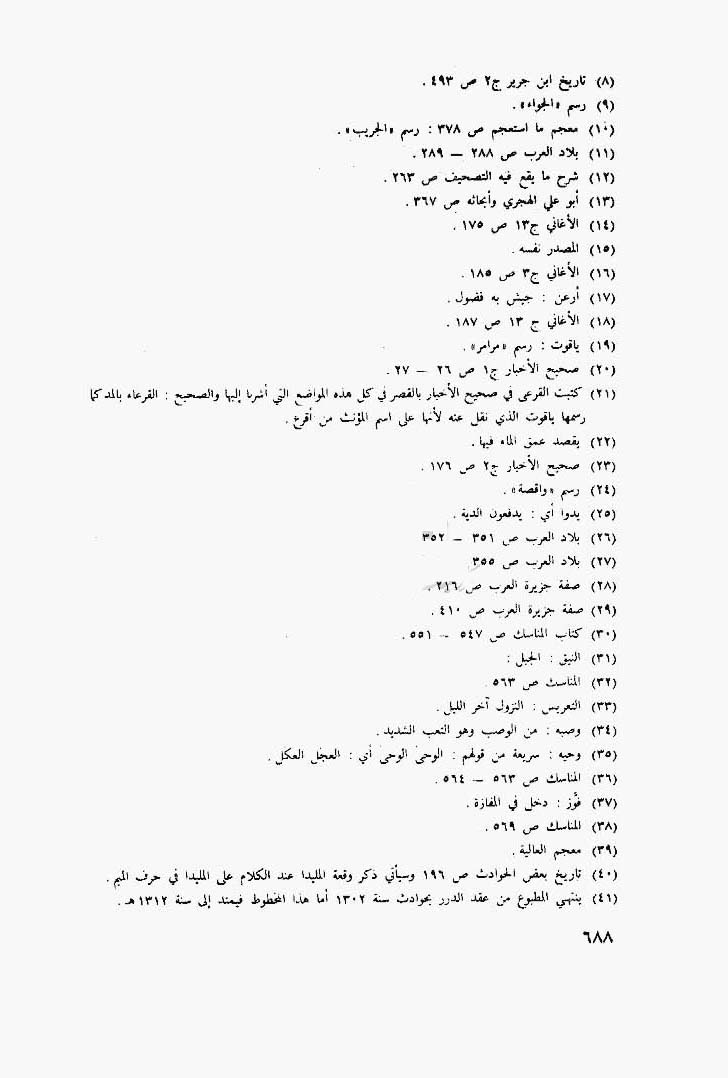 (٨) تاريخ ابن جرير ج٢ ص ٤٩٣ .
(٩) رسم «الجواء» .
(١٠) معجم ما استعجم ص ٣٧٨ : رسم «الجريب» .
(١١) بلاد العرب ص ٢٨٨ — ٢٨٩ .
(١٢) شرح ما يقع فيه التصحيف ص ٢٦٣ .
(١٣) أبو علي الهجري وأبحاثه ص ٣٦٧ .
(١٤) الأغاني ج١٣ ص ١٧٥ .
(١٥) المصدر نفسه .
(١٦) الأغاني ج٣ ص ١٨٥ .
(١٧) أرعن : جيش به فضول .
(١٨) الأغاني ج ١٣ ص ١٨٧ .
(١٩) ياقوت : رسم «مرامر» .
(٢٠) صحيح الأخبار ج١ ص ٢٦ — ٢٧ .
(٢١) كتبت القرعى في صحيح الأخبار بالقصر في كل هذه المواضع التي أشرنا إليها والصحيح : القرعاء بالمد كما
رسمها ياقوت الذي نقل عنه لأنها على اسم المؤنث من أقرع .
(٢٢) يقصد عمق الماء فيها .
(٢٣) صحيح الأخبار ج٢ ص ١٧٦ .
(٢٤) رسم «واقصة» .
(٢٥) يدوا أي : يدفعون الدية .
(٢٦) بلاد العرب ص ٣٥١ — ٣٥٢
(٢٧) بلاد العرب ص ٣٥٥
(٢٨) صفة جزيرة العرب ص ٢١٦ .
(٢٩) صفة جزيرة العرب ص ٤١٠ .
(٣٠) كتاب المناسك ص ٥٤٧ — ٥٥١ .
(٣١) النيق : الجبل :
(٣٢) المناسك ص ٥٦٣ .
(٣٣) التعريس : النزول آخر الليل .
(٣٤) وصبه : من الوصب وهو التعب الشديد .
(٣٥) وحيه : سريعة من قولهم : الوحىٰ الوحىٰ أي : العجل العكل .
(٣٦) المناسك ص ٥٦٣ — ٥٦٤ .
(٣٧) فوَّز : دخل في المفازة .
(٣٨) المناسك ص ٥٦٩ .
(٣٩) معجم العالية .
(٤٠) تاريخ بعض الحوادث ص ١٩٦ وسيأتي ذكر وقعة المليدا عند الكلام على المليدا في حرف الميم .
(٤١) ينتهي المطبوع من عقد الدرر بحوادث سنة ١٣٠٢ أما هذا المخطوط فيمتد إلى سنة ١٣١٢هـ .
٦٨٨